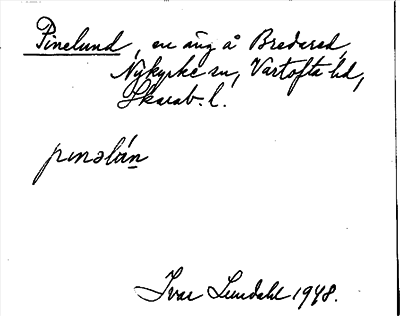 Pinelund, en äng å Bredared,
Nykyrke sn, Vartofta hd,
Skarab. l.
pinəlún
Ivar Lundahl 1948.